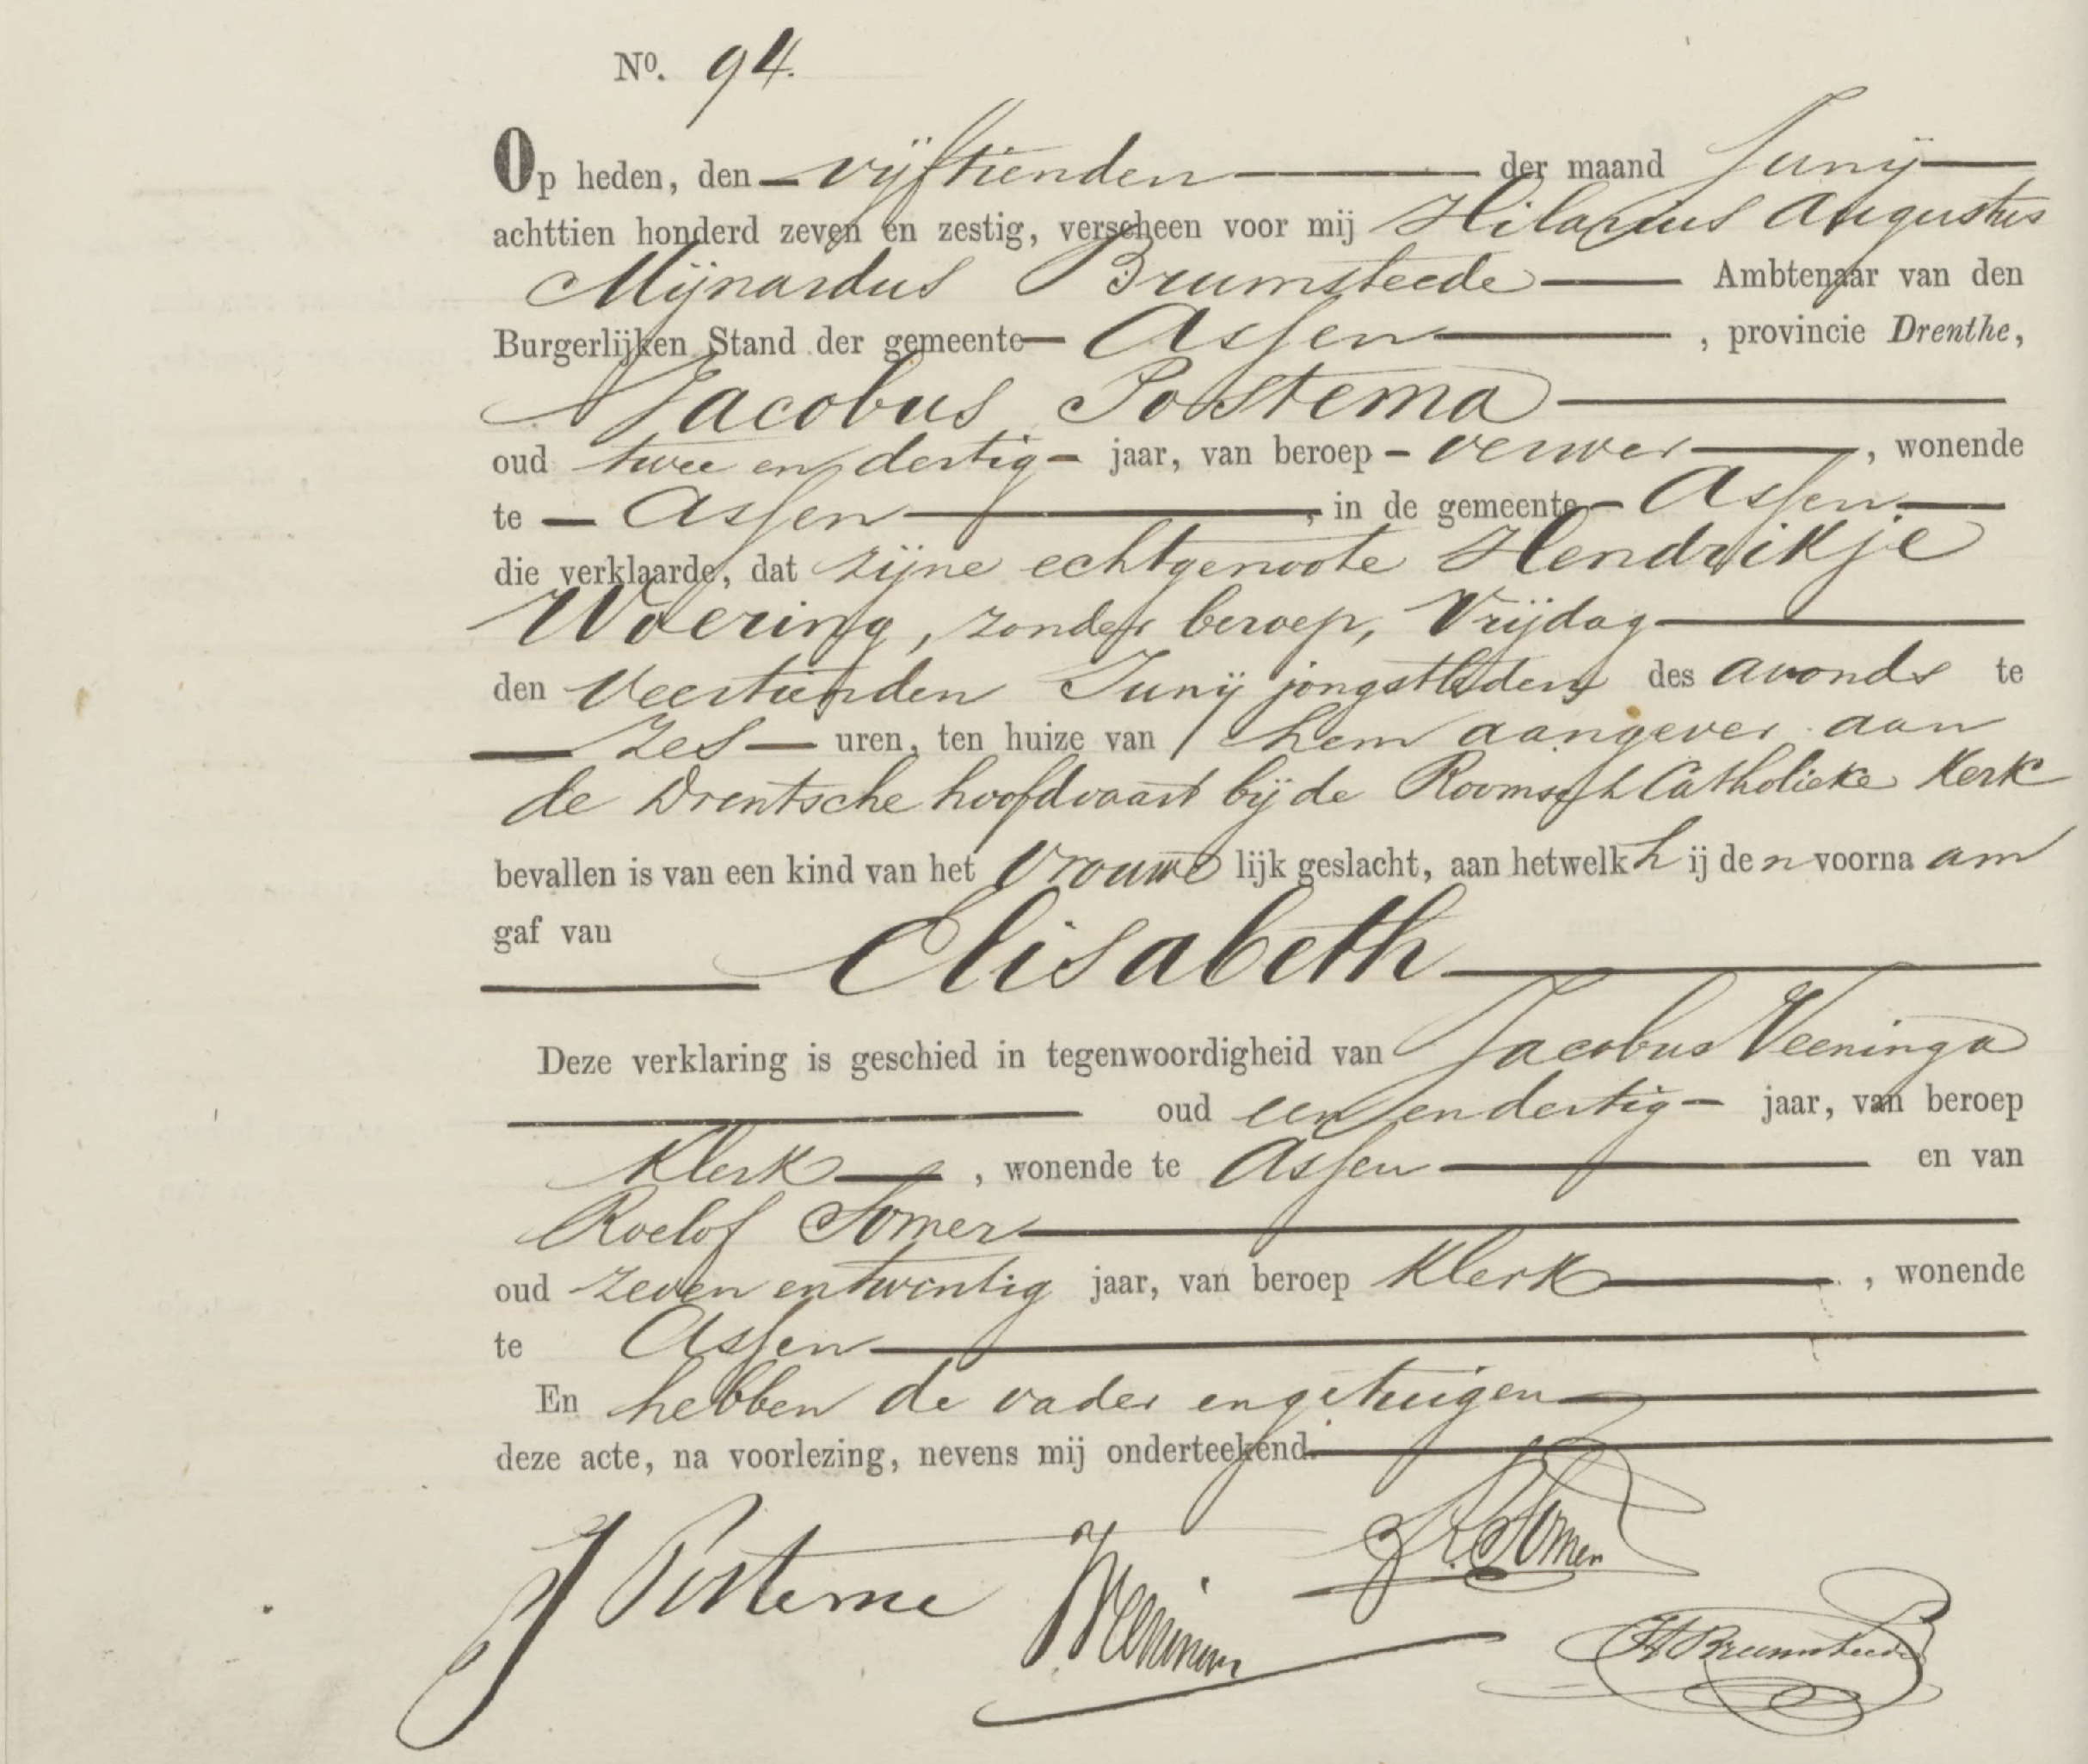 No. 94.
Op heden, den vijftienden der maand Junij
achttien honderd zeven en zestig, verscheen voor mij Hilarius Augustus
Mijnardus Brumsteede Ambtenaar van den
Burgerlijken Stand der gemeente Assen, provincie Drenthe,
Jacobus Postema
oud twee en dertig jaar, van beroep verwer, wonende
te Assen, in de gemeente Assen
die verklaarde, dat zijne echtgenoote Hendrikje
Woering, zonder beroep, Vrijdag
den veertienden Junij jongstleden des avonds te
zes uren, ten huize van hem aangever aan
de Drentsche hoofdvaart bij de Roomsch Catholieke Kerk
bevallen is van een kind van het vrouwelijk geslacht, aan hetwelk hij den voornaam
gaf van Elisabeth
Deze verklaring is geschied in tegenwoordigheid van Jacobus Veeninga
oud een en dertig jaar, van beroep
Klerk, wonende te Assen en van
Roelof Somer
oud zeven en twintig jaar, van beroep Klerk, wonende
te Assen
En hebben de vader en getuigen
deze acte, na voorlezing, nevens mij onderteekend.
R. Somer
J Postema
HA Brumsteede